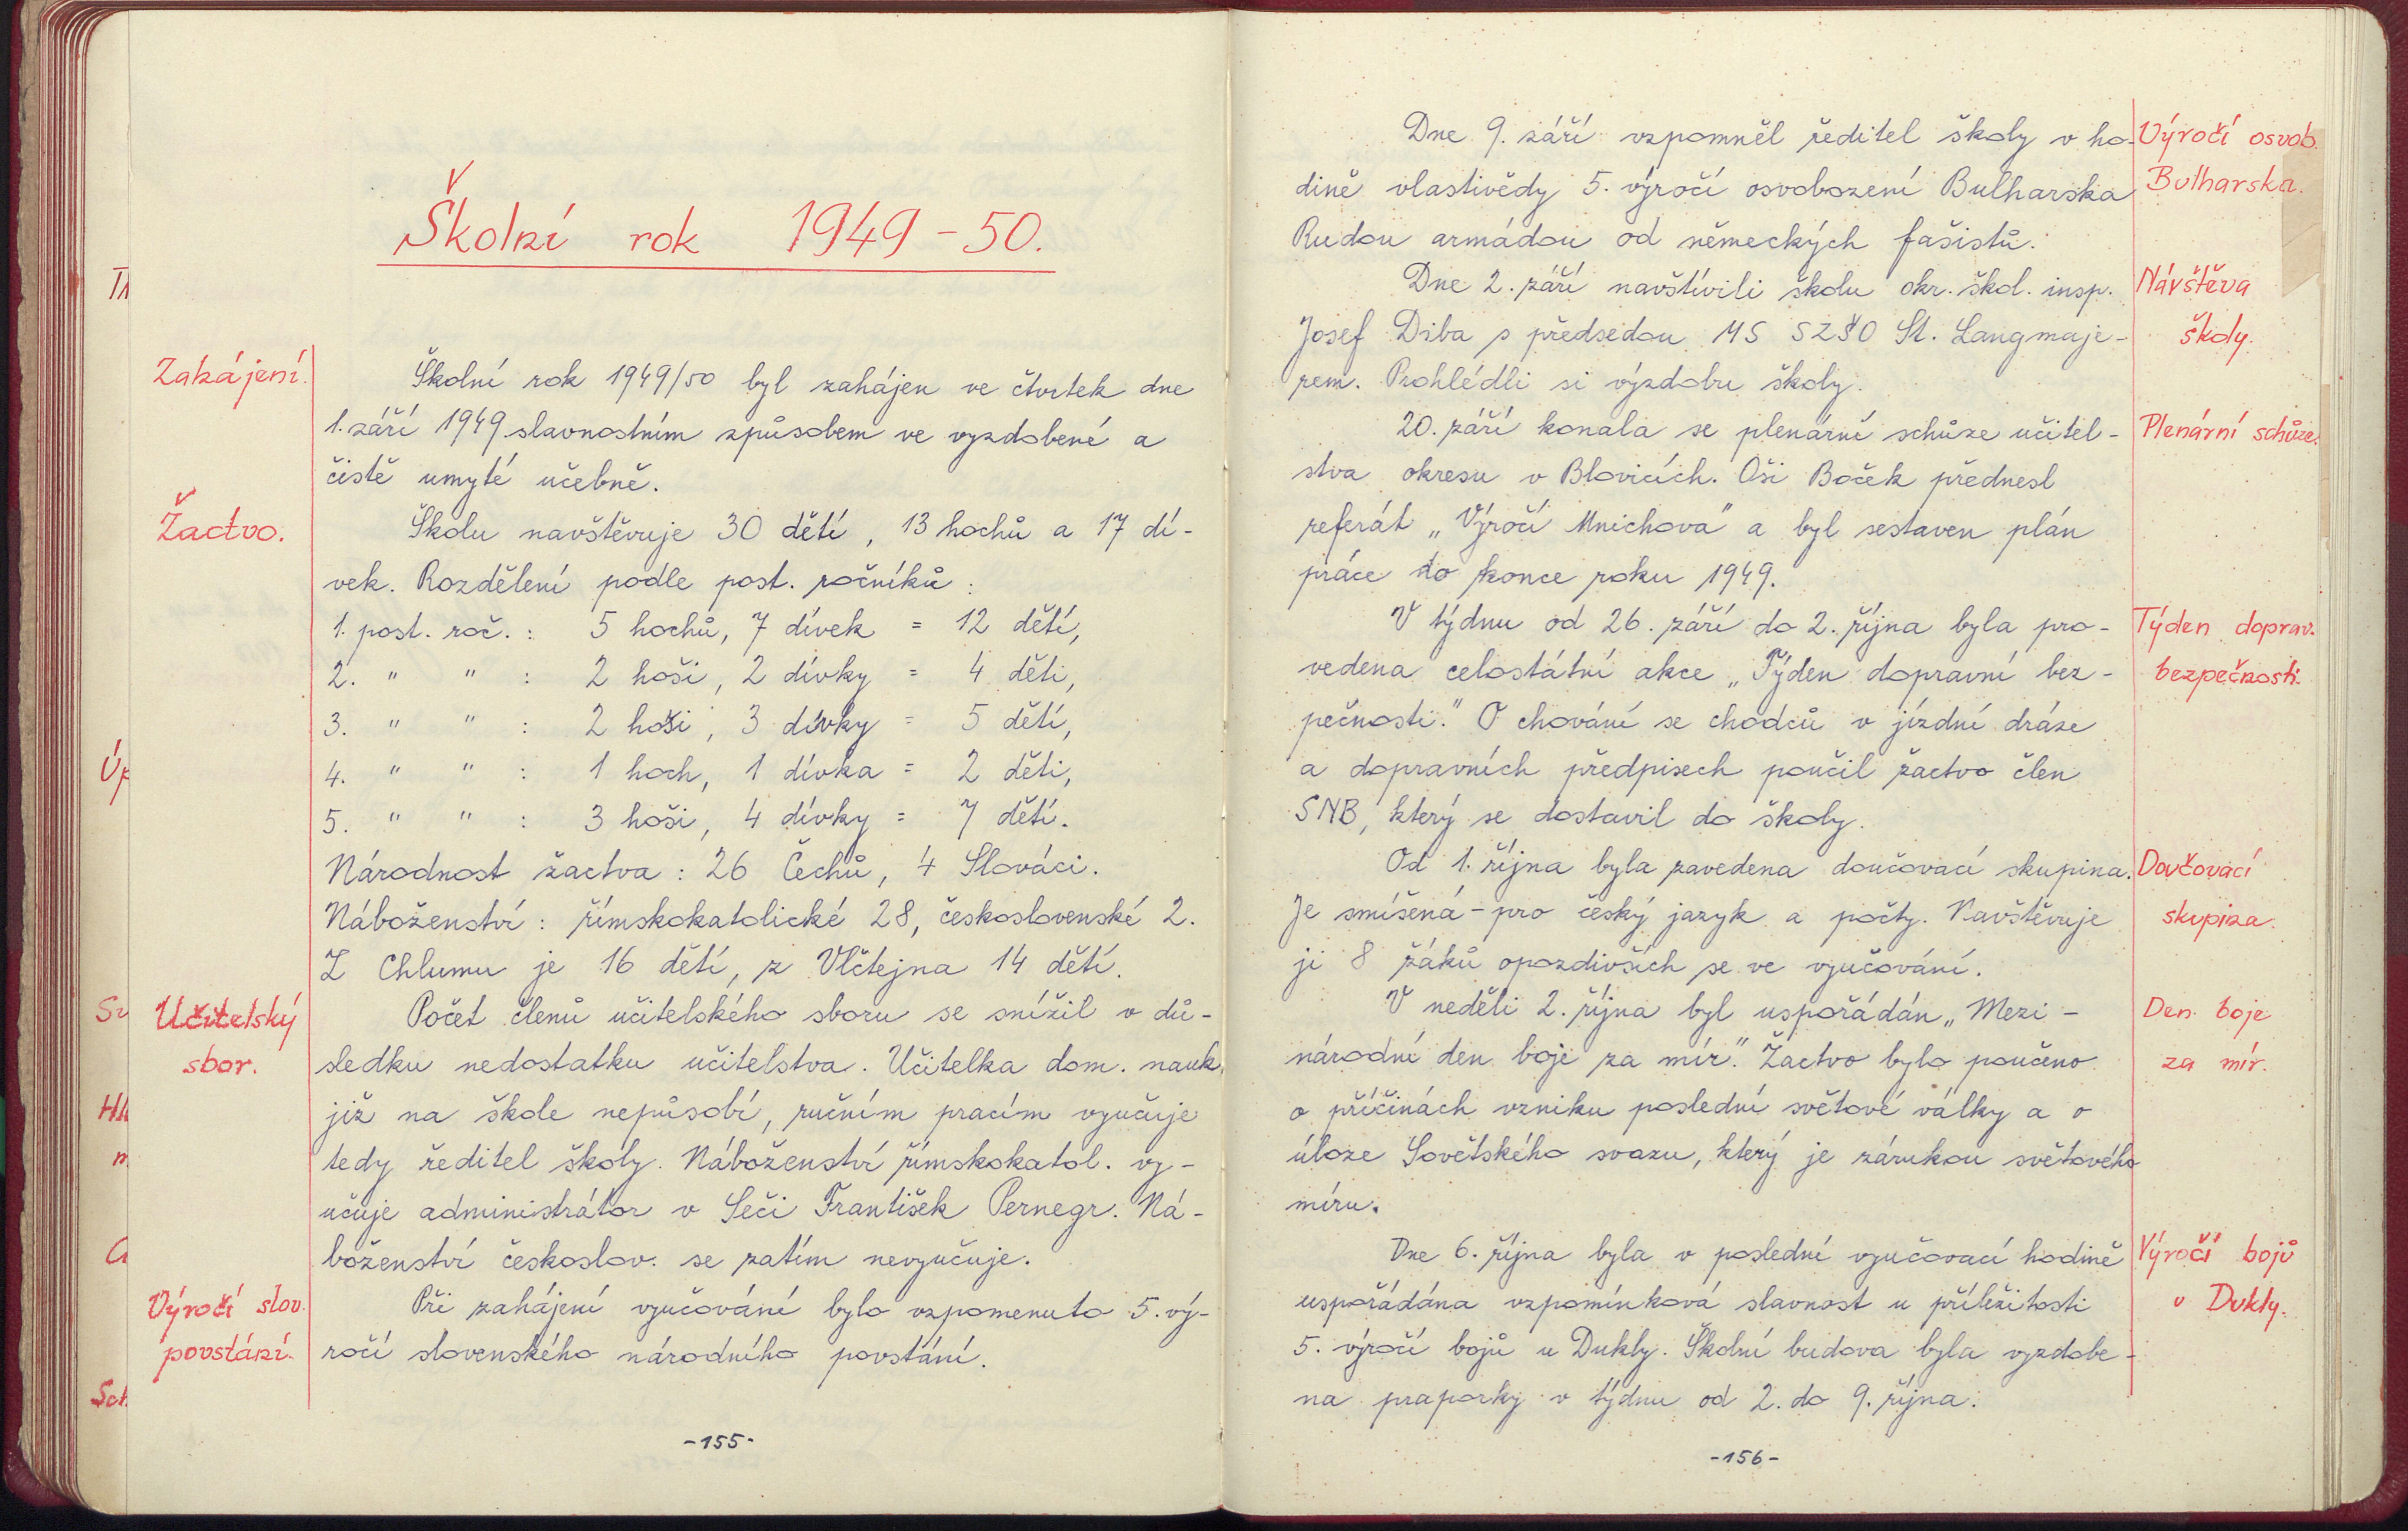 Školní rok 1949 - 50.
Zahájení.
Školní rok 1949/50 byl zahájen ve čtvrtek dne
1. září 1949 slavnostním způsobem ve vyzdobené a
čistě umyté učebně.
Žactvo.
Školu navštěvuje 30 dětí, 13 hochů a 17 dí-
vek. Rozdělení podle post. ročníků:
1. post. roč. : 5 hochů, 7 dívek = 12 dětí,
2. " " : 2 hoši, 2 dívky = 4 děti,
3. " " : 2 hoši, 3 dívky = 5 dětí,
4. " " : 1 hoch, 1 dívka = 2 děti,
5. " " : 3 hoši, 4 dívky = 7 dětí.
Národnost žactva : 26 Čechů, 4 Slováci.
Náboženství : římskokatolické 28, československé 2.
Z Chlumu je 16 dětí, z Vlčtejna 14 dětí.
Učitelský
sbor.
Počet členů učitelského sboru se snížil v dů-
sledku nedostatku učitelstva. Učitelka dom. nauk
již na škole nepůsobí, ručním pracím vyučuje
tedy ředitel školy. Náboženství římskokatol. vy-
učuje administrátor v Seči František Pernegr. Ná-
boženství českoslov. se zatím nevyučuje.
Výročí slov.
povstání.
Při zahájení vyučování bylo vzpomenuto 5. vý-
ročí slovenského národního povstání.
-155-
Dne 9. září vzpomněl ředitel školy v ho-
dině vlastivědy 5. výročí osvobození Bulharska
Rudou armádou od německých fašistů.
Výročí osvob.
Bulharska.
Dne 2. září navštívili školu okr. škol. insp.
Josef Diba s předsedou MS SZŠO St. Langmaje-
rem. Prohlédli si výzdobu školy.
Návštěva
školy.
20. září konala se plenární schůze učitel-
stva okresu v Blovicích. Oši Boček přednesl
referát „Výročí Mnichova" a byl sestaven plán
práce do konce roku 1949.
Plenární schůze.
V týdnu od 26. září do 2. října byla pro-
vedena celostátní akce „Týden dopravní bez-
pečnosti." O chování se chodců v jízdní dráze
a dopravních předpisech poučil žactvo člen
SNB, který se dostavil do školy.
Týden doprav.
bezpečnosti.
Od 1. října byla zavedena doučovací skupina.
Je smíšená - pro český jazyk a počty. Navštěvuje
ji 8 žáků opozdivších se ve vyučování.
Doučovací
skupina.
V neděli 2. října byl uspořádán „Mezi-
národní den boje za mír." Žactvo bylo poučeno
o příčinách vzniku poslední světové války a o
úloze Sovětského svazu, který je zárukou světového
míru.
Den boje
za mír.
Dne 6. října byla v poslední vyučovací hodině
uspořádána vzpomínková slavnost u příležitosti
5. výročí bojů u Dukly. Školní budova byla vyzdobe-
na praporky v týdnu od 2. do 9. října.
Výročí bojů
u Dukly.
-156-